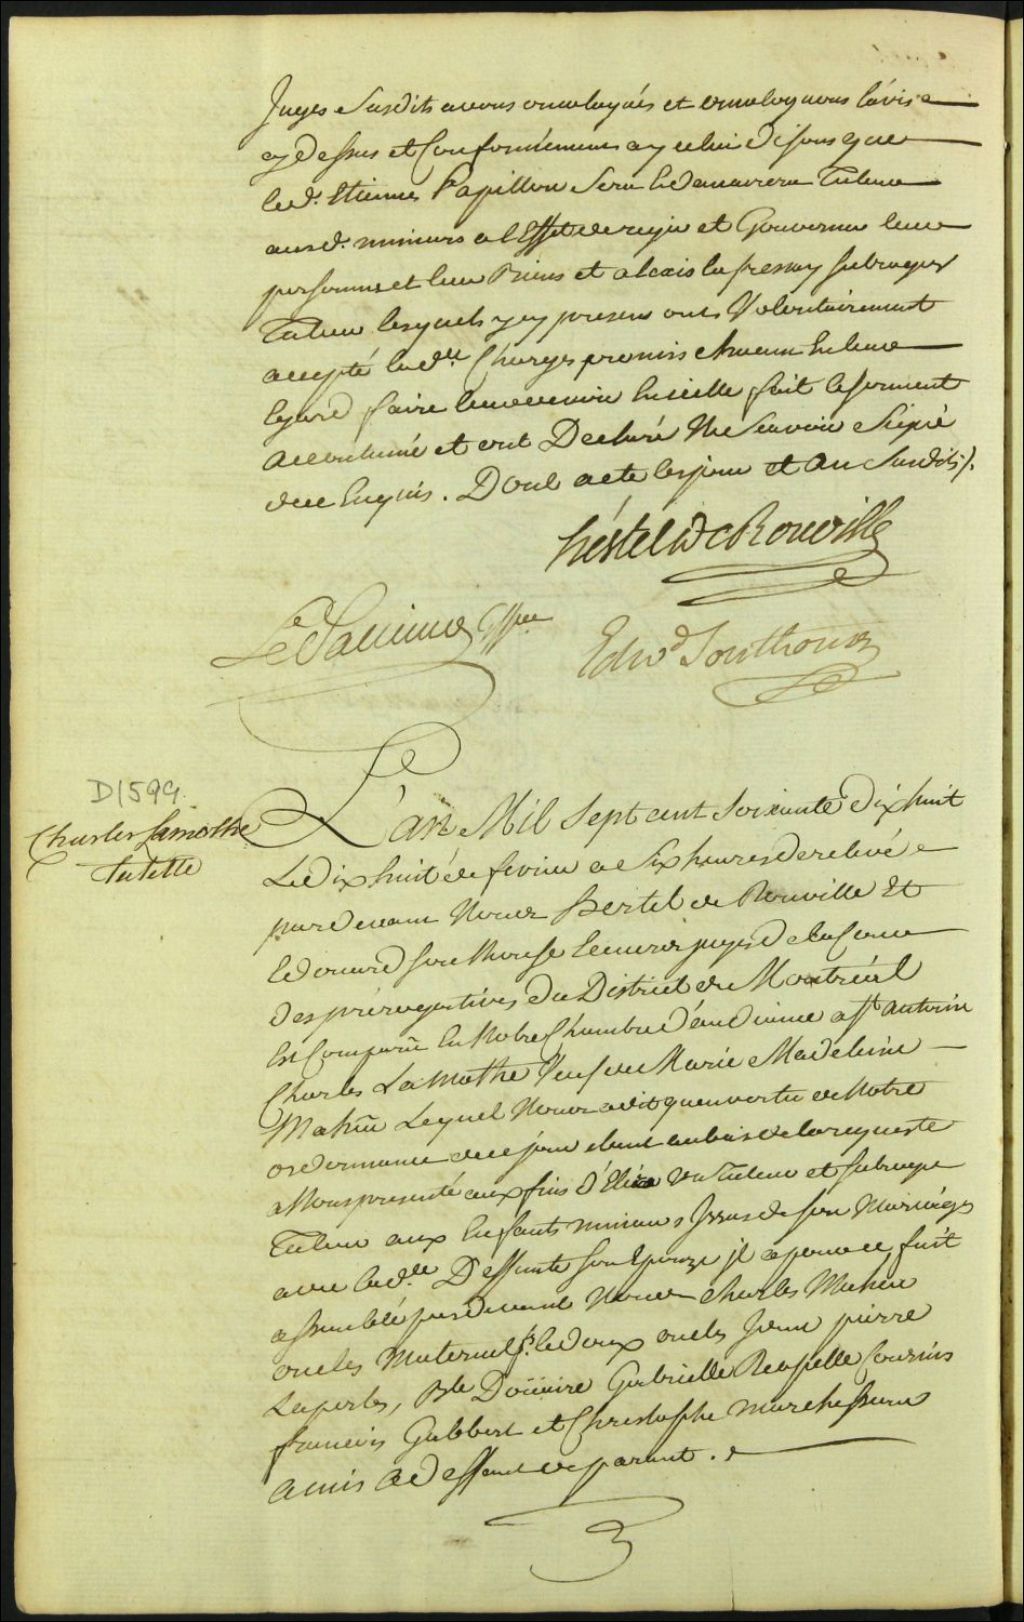 Juges Susdits avons omologués et omologuons lavis
cy dessus et Conformément a yceluy disons que
led. Etienne Papillon Sera Et demeurera Tuteur
ausd. mineurs a l'Effet de regir et Gouverner leurs
personnes et leur Biens et alexis la fresnay subrogés
Tuteur lesquels a ce presens ont Volontairement
accepté lad.te Charges promis chacun En leur
Egard faire leur devoir Enicelle fait le serment
accoutumé et ont Declaré Ne Scavoir Signé
dece Enquis. Dont acte les jour et an Susdits ./.
hertel De Rouville
Le Pallieur Gffier
Edwd Southouse
D1599.
Charles Lamothe
Tutelle
L'an Mil Sept cent Soixante Dix huit
Le Dix huit de fevrier a Six heures de relevé
pardevant Nous hertel de Rouville Et
Edouard Southouse Ecuiers juges de la Cour
des prérogatives du District de Montréal
Est Comparu En Notre Chambre d'audience a St antoin
Charles La mothe Veuf de Marie Madeleine
Maheu Lequel Nous a dit quen vertu de Notre
ordonnance de ce jour étant au bas de la requeste
a Nous presenté aux fins d'Elire un Tuteur et subrogé
Tuteur aux Enfants mineurs Issus de son Mariages
avec lad.te Deffunte son Epouze jl a pour ce fait
assemblé pardevant Nous Charles Maheu
oncles Maternel, ledoux oncles Jean pierre
Laperle, Ble Doüaire Gabrielle Reapelle Cousins
francois Gabbert et Christophe marchesseau
amis a deffaut de parent.